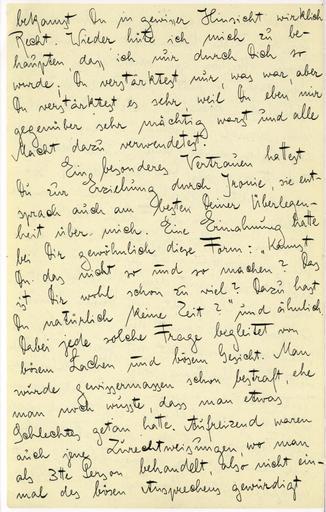 bekamst Du in gewisser Hinsicht wirklich
Recht. Wieder hüte ich mich zu be-
haupten dass ich nur durch Dich so
wurde, Du verstärktest nur, was war, aber
Du verstärktest es sehr, weil Du eben mir
gegenüber sehr mächtig warst und alle
Macht dazu verwendetest.
Ein besonderes Vertrauen hattest
Du zur Erziehung durch Ironie, sie ent-
sprach auch am besten Deiner Überlegen-
heit über mich. Eine Ermahnung hatte
bei Dir gewöhnlich diese Form: „Kannst
Du das nicht so und so machen? Das
ist Dir wohl schon zu viel? Dazu hast
Du natürlich keine Zeit?" und ähnlich.
Dabei jede solche Frage begleitet von
bösem Lachen und bösem Gesicht. Man
wurde gewissermassen schon bestraft, ehe
man noch wusste, dass man etwas
Schlechtes getan hatte. Aufreizend waren
auch jene Zurechtweisungen, wo man
als 3tte Person behandelt, also nicht ein-
mal des bösen Ansprechens gewürdigt